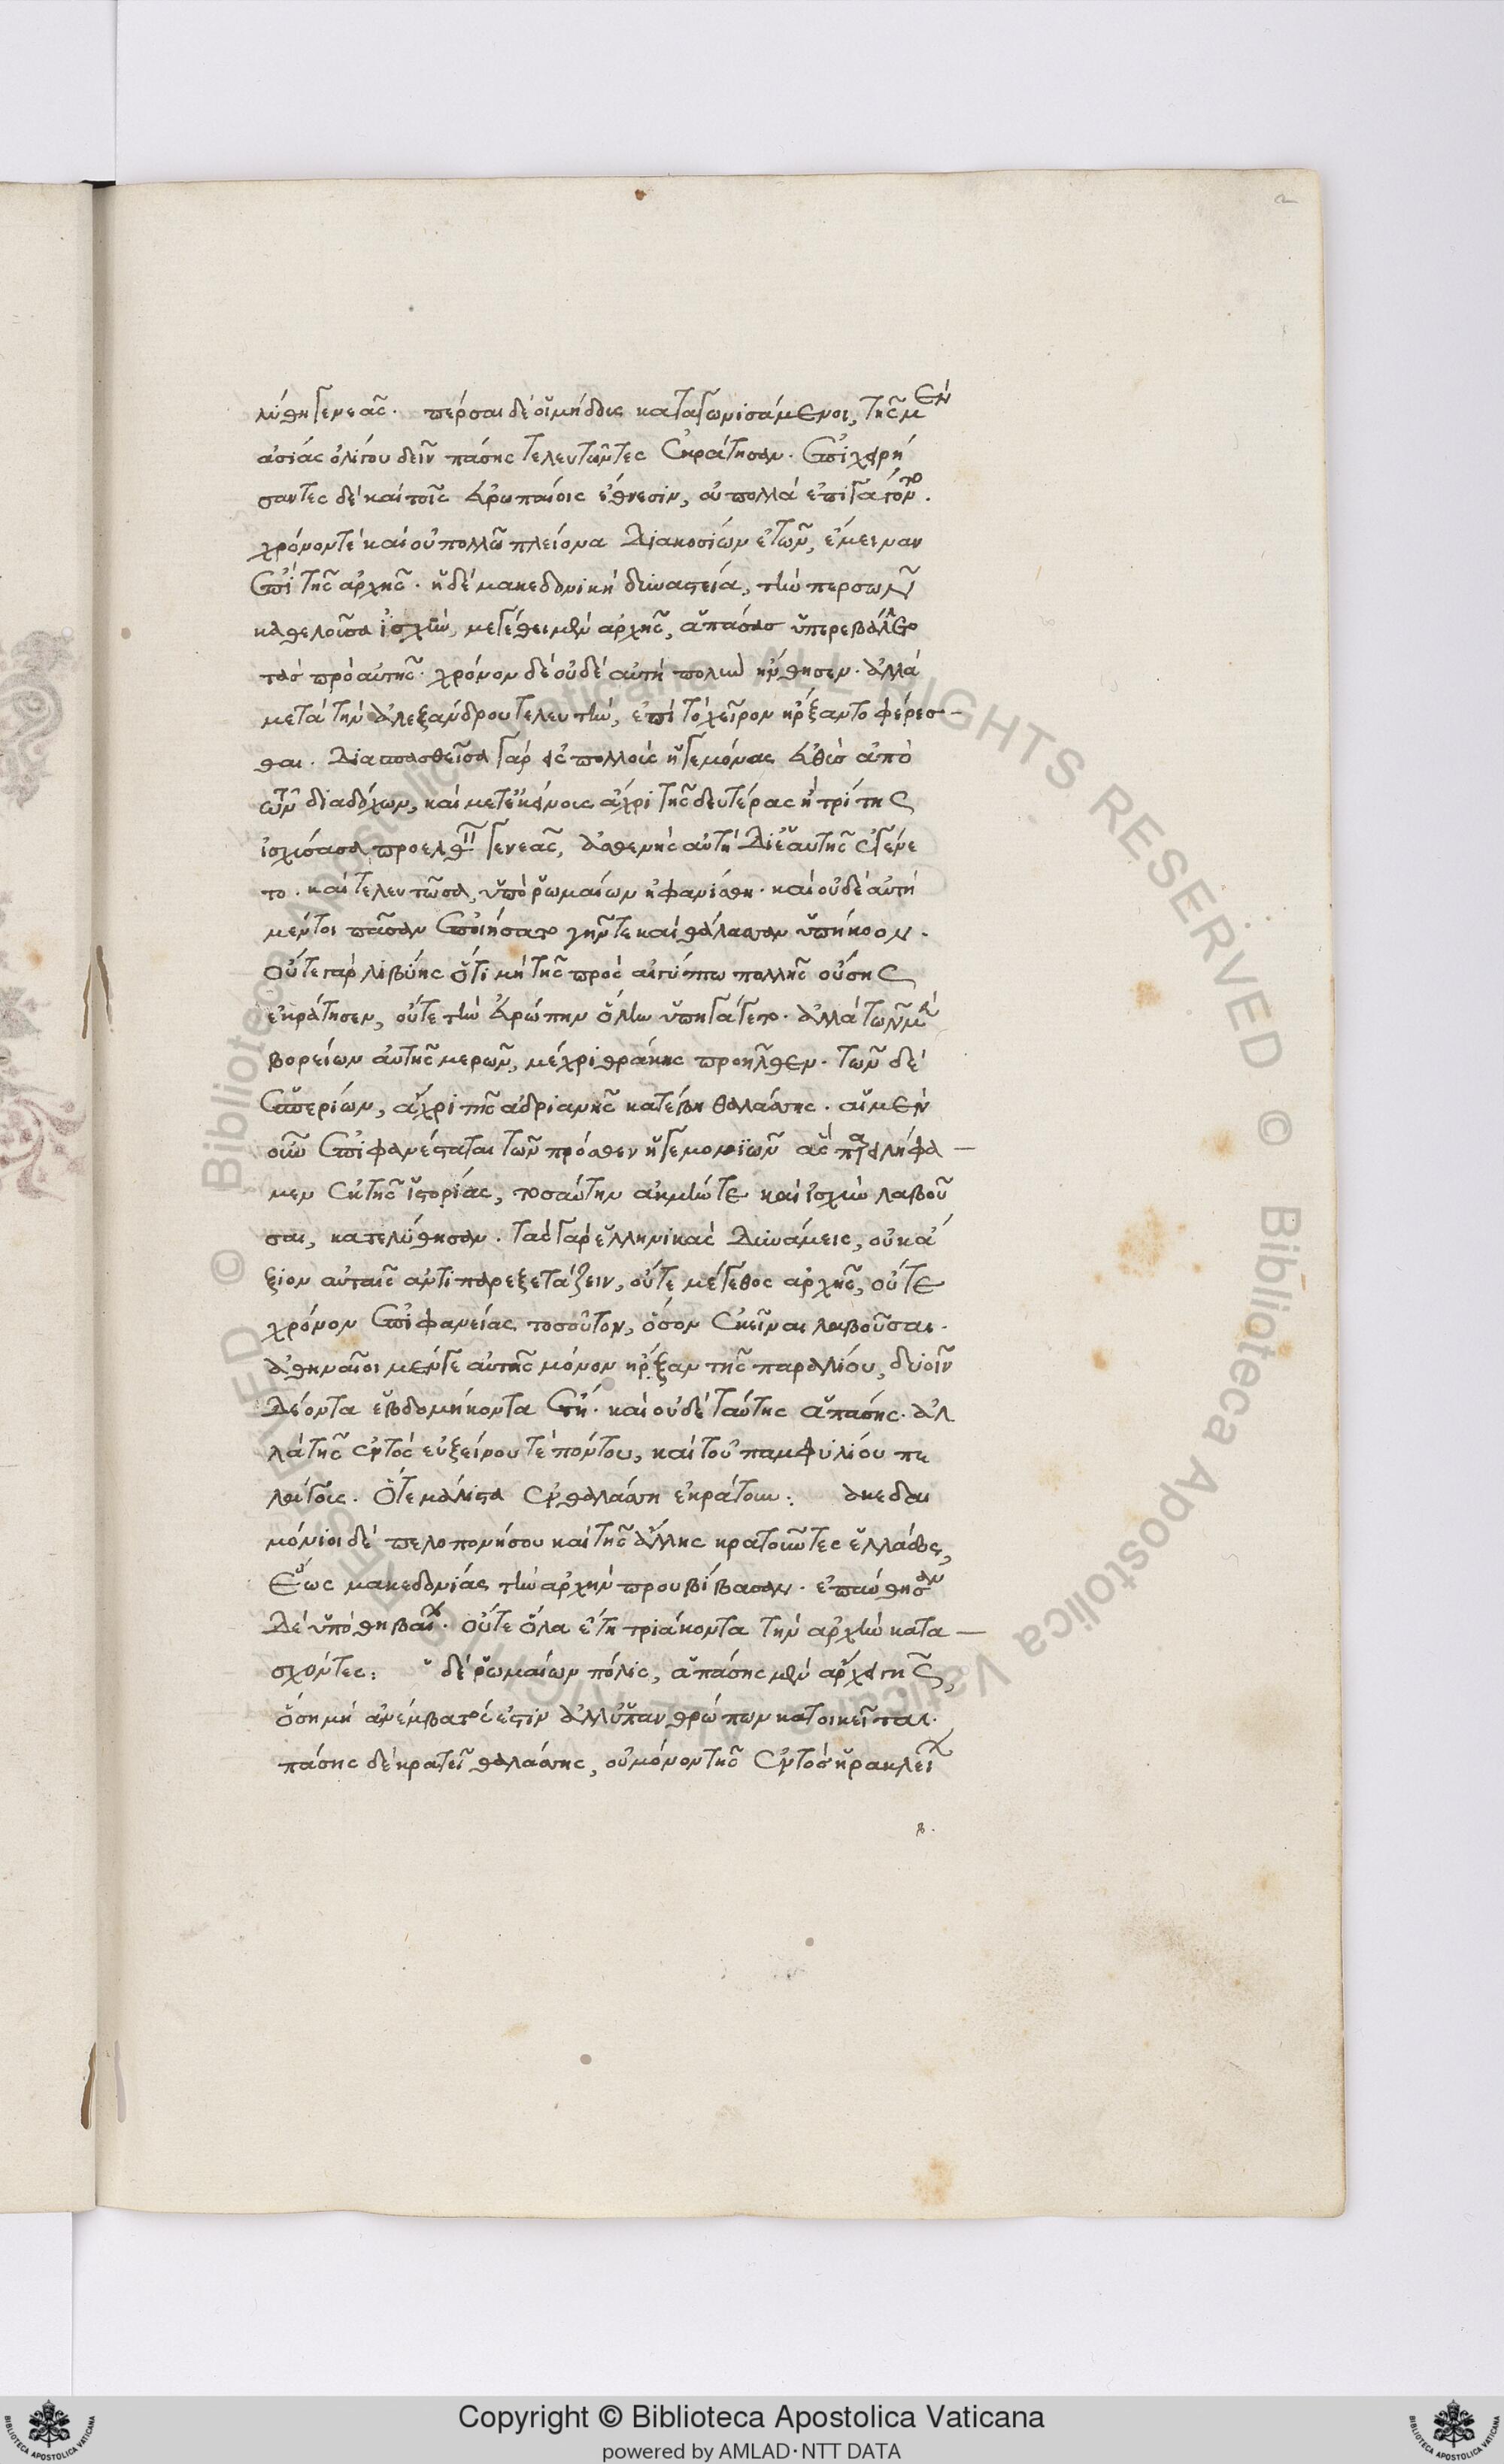 λύθη γενεᾶς. πέρσαι δὲ οἱ μήδους καταγωνισάμενοι, τῆς μὲν
ἀσίας ὀλίγου δεῖν πάσης τελευτῶντες ἐκράτησαν. ἐπιχειρή
σαντες δὲ καὶ τοῖς εὐρωπαίοις ἔθνεσιν, οὐ πολλὰ ἐπηγάγοντο.
χρόνον τὲ καὶ οὐ πολλῶ πλείονα διακοσίων ἐτῶν, ἔμειναν
ἐπὶ τῆς ἀρχῆς. ἡ δὲ μακεδονικὴ δυναστεία, τὴν περσῶν
καθελοῦσα ἰσχὺν, μεγέθει μὲν ἀρχῆς, ἁπάσας ὑπερεβάλετο
τὰς πρὸ αὐτῆς. χρόνον δὲ οὐδὲ αὐτὴ πολὺν ἤνθησεν. ἀλλὰ
μετὰ τὴν ἀλεξάνδρου τελευτὴν, ἐπὶ τὸ χεῖρον ἤρξαντο φέρεσ-
θαι. διασπασθεῖσα γὰρ εἰς πολλοὺς ἡγεμόνας εὐθὺς ἀπὸ
τῶν διαδόχων, καὶ μετ' ἐκείνους ἄχρι τῆς δευτέρας ἢ τρίτης
ἰσχύσασα προελθεῖν γενεᾶς, ἀσθενὴς αὐτὴ δι' ἑαυτῆς ἐγένε
το. καὶ τελευτῶσα, ὑπὸ ῥωμαίων ἠφανίσθη. καὶ οὐδὲ αὐτὴ
μέντοι πᾶσαν ἐποιήσατο γῆν τε καὶ θάλασσαν ὑπήκοον.
οὔτε γὰρ λιβύης ὅτι μὴ τῆς πρὸς αἰγύπτω πολλῆς οὔσης
ἐκράτησεν, οὔτε τὴν εὐρώπην ὅλην ὑπηγάγετο. ἀλλὰ τῶν μὲν
βορείων αὐτῆς μερῶν, μέχρι θράκης προῆλθεν. τῶν δὲ
ἑσπερίων, ἄχρι τῆς ἀδριανῆς κατέβη θαλάσσης. αἱ μὲν
οὖν ἐπιφανέσταται τῶν πρόσθεν ἡγεμονϊῶν ἃς παρειλήφα-
μεν ἐκ τῆς ἱστορίας, τοσαύτην ἀκμήν τε καὶ ἰσχὺν λαβοῦ
σαι, κατελύθησαν. τὰς γὰρ ἑλληνικὰς δυνάμεις, οὐκ ἄ
ξιον αὐταῖς ἀντιπαρεξετάζειν, οὔτε μέγεθος ἀρχῆς, οὔτε
χρόνον ἐπιφανείας τοσοῦτον, ὅσον ἐκεῖναι λαβοῦσαι.
ἀθηναῖοι μέν γε αὐτῆς μόνον ἦρξαν τῆς παραλίου, δυοῖν
δέοντα ἑβδομήκοντα ἔτη. καὶ οὐδὲ ταύτης ἁπάσης. ἀλ
λὰ τῆς ἐντὸς εὐξείνου τὲ πόντου, καὶ τοῦ παμφυλίου πε
λάγους. ὅτε μάλιστα ἐν θαλάσση ἐκράτουν: ακεδαι
μόνιοι δὲ πελοπονήσου καὶ τῆς ἄλλης κρατοῦντες ἑλλάδος,
ἕως μακεδονίας τὴν ἀρχὴν προυβίβασαν. ἐπαύθησαν
δὲ ὑπὸ θηβαίων. οὔτε ὅλα ἔτη τριάκοντα τὴν ἀρχὴν κατα-
σχόντες: δὲ ῥωμαίων πόλις, ἁπάσης μὲν ἄρχει γῆς,
ὅση μὴ ἀνέμβατός ἐστιν ἀλλ' ὑπ' ἀνθρώπων κατοικεῖται.
πάσης δὲ κρατεῖ θαλάσσης, οὐ μόνον τῆς ἐντὸς ἡρακλείων